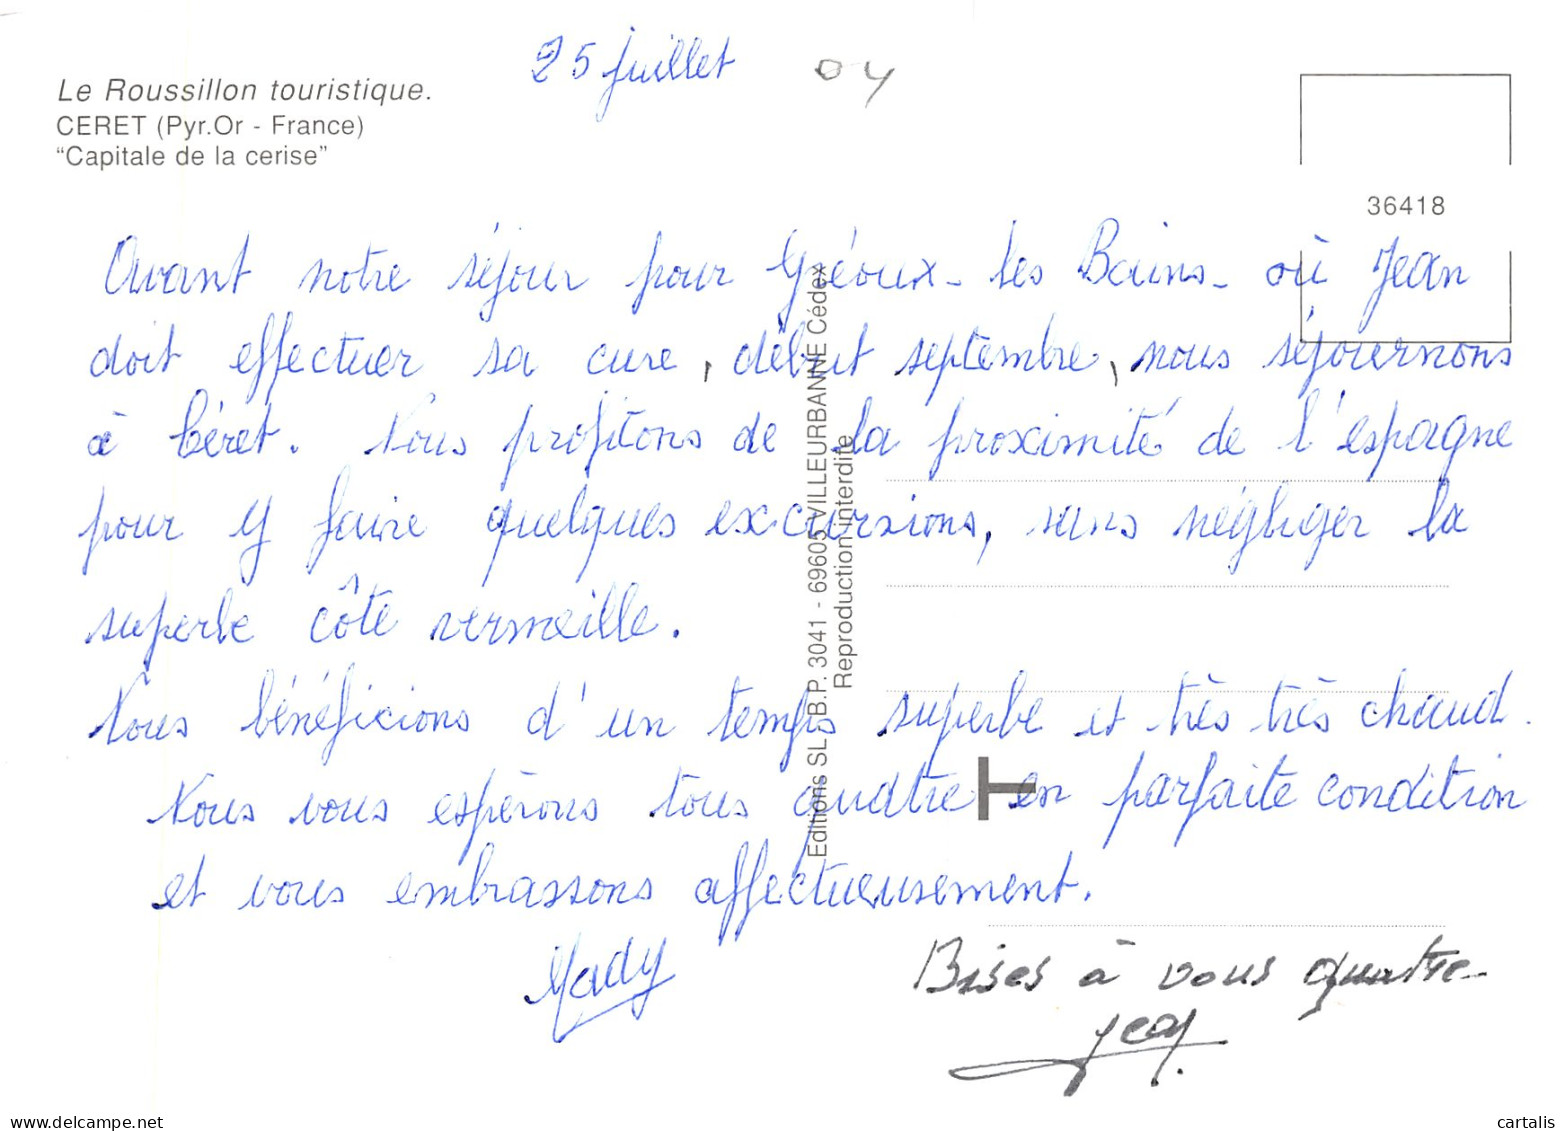 25 juillet 04
Le Roussillon touristique.
CERET (Pyr.Or - France)
“Capitale de la cerise”
36418
Avant notre séjour pour Gréoux-les Bains- où Jean
doit effectuer sa cure, début septembre, nous séjournons
à Céret. Nous profitons de la proximité de l'espagne
pour y faire quelques excursions, sans négliger la
superbe côte vermeille.
Nous bénéficions d'un temps superbe et très très chaud.
Nous vous espérons tous quatre en parfaite condition
et vous embrassons affectueusement.
Mady
Bises à vous quatre
Jean
Editions SL - B.P. 3041 - 69605 VILLEURBANNE Cédex
Reproduction interdite
delcampe.net
cartalis